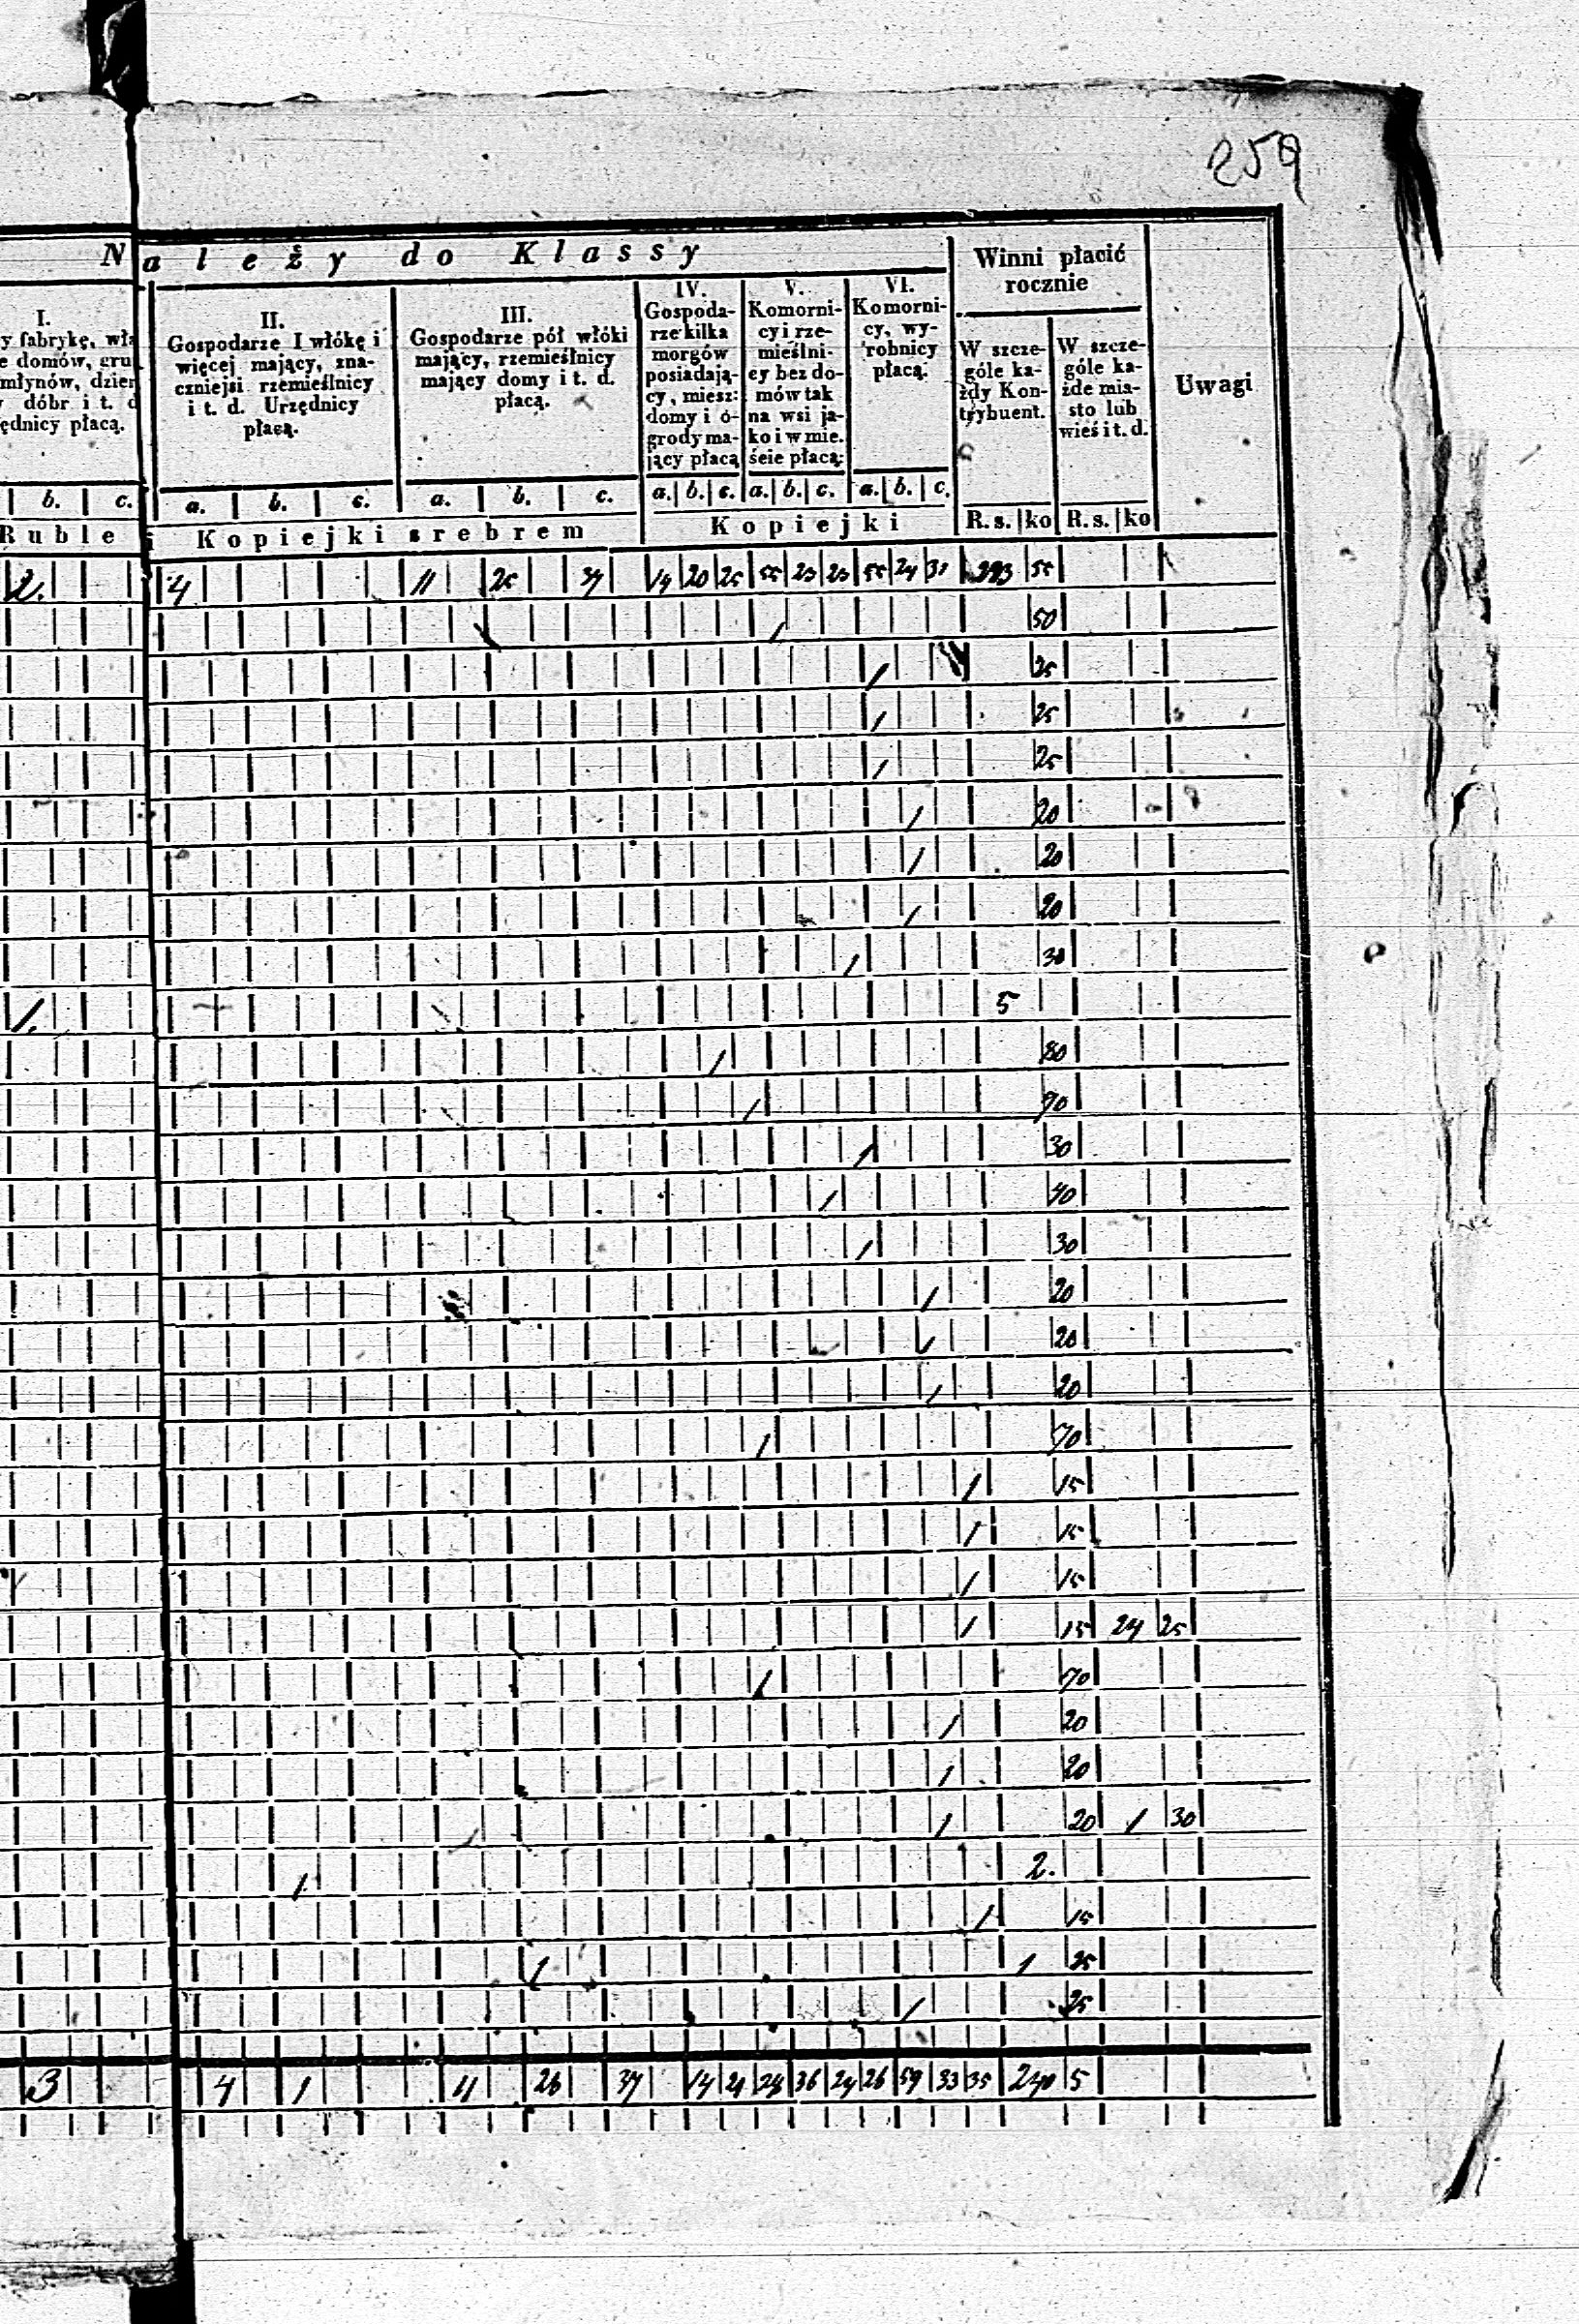 259
Należy do Klassy
Winni płacić
rocznie
I.
y fabrykę, wła
e domów, gru
młynów, dzier
dóbr i t. d
ędnicy płacą.
II.
Gospodarze I włókę i
więcej mający, zna-
czniejsi rzemieślnicy
i t. d. Urzędnicy
płacą.
III.
Gospodarze pół włóki
mający, rzemieślnicy
mający domy i t. d.
płacą.
IV.
Gospoda-
rze kilka
morgów
posiadają-
cy, miesz:
domy i o-
grody ma-
jący płacą
V.
Komorni-
cy i rze-
mieślni-
cy bez do-
mów tak
na wsi ja-
ko i w mie.
ście płacą:
VI.
Komorni-
cy, wy-
robnicy
płacą.
W szcze-
góle ka-
żdy Kon-
trybuent.
W szcze-
góle ka-
żde mia-
sto lub
wieś i t. d.
Uwagi
b. c. a. b. c. a. b. c. a. b. c. a. b. c. a. b. c.
Ruble i Kopiejki srebrem Kopiejki R. s. ko R. s. ko
2. 4 11 25 37 14 20 25 55 23 23 55 24 31 55
/ 50
/ 25
/ 25
/ 25
/ 20
/ 20
/ 20
/ 30
1. 5
/ 80
/ 70
/ 30
/ 40
/ 30
/ 20
/ 20
/ 20
/ 70
/ 15
/ 15
/ 15
/ 15 24 25
/ 70
/ 20
/ 20
/ 20 1 30
1. 2.
/ 15
/ 1 25
/ 25
3 4 1 11 26 37 14 21 28 36 24 26 59 33 35 240 5